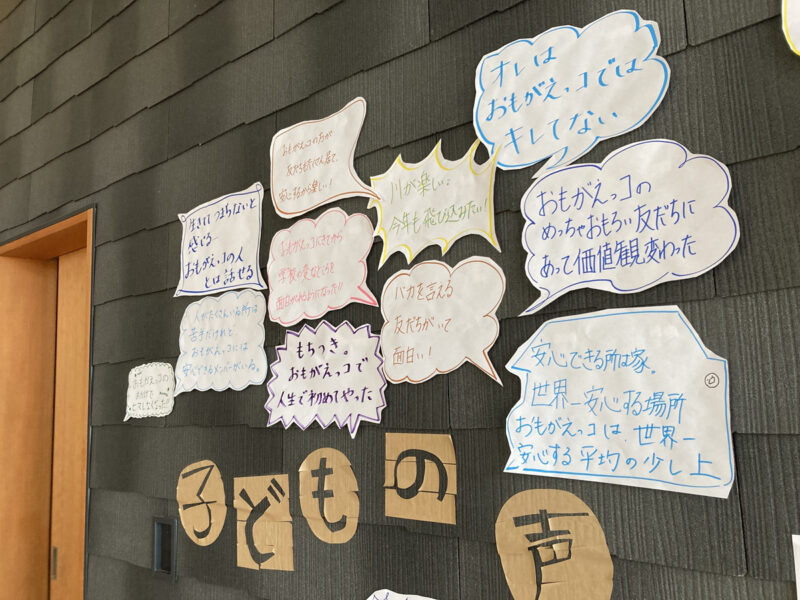 オレは
おもがえっコでは
キレてない
おもがえっコの方が
友だちも
楽しい!
川が楽しい。
今年も飛び込みたい!
おもがえっコの
めっちゃおもろい友だちに
あって価値観変わった
生きててつまらないと
感じる
おもがえっコの人
とは話せる
おもがえっコにきてから
学校の変なところを
になった!!
バカを言える
友だちがいて
面白い!
人がたくさんいる所は
苦手だけれど
おもがえっコには
安心できるメンバーがいる。
もちつき。
おもがえっコで
人生で初めてやった
おもがえっコの
安心できる所は家。
世界一安心する場所
おもがえっコは、世界一
安心する平均の少し上
子どもの声